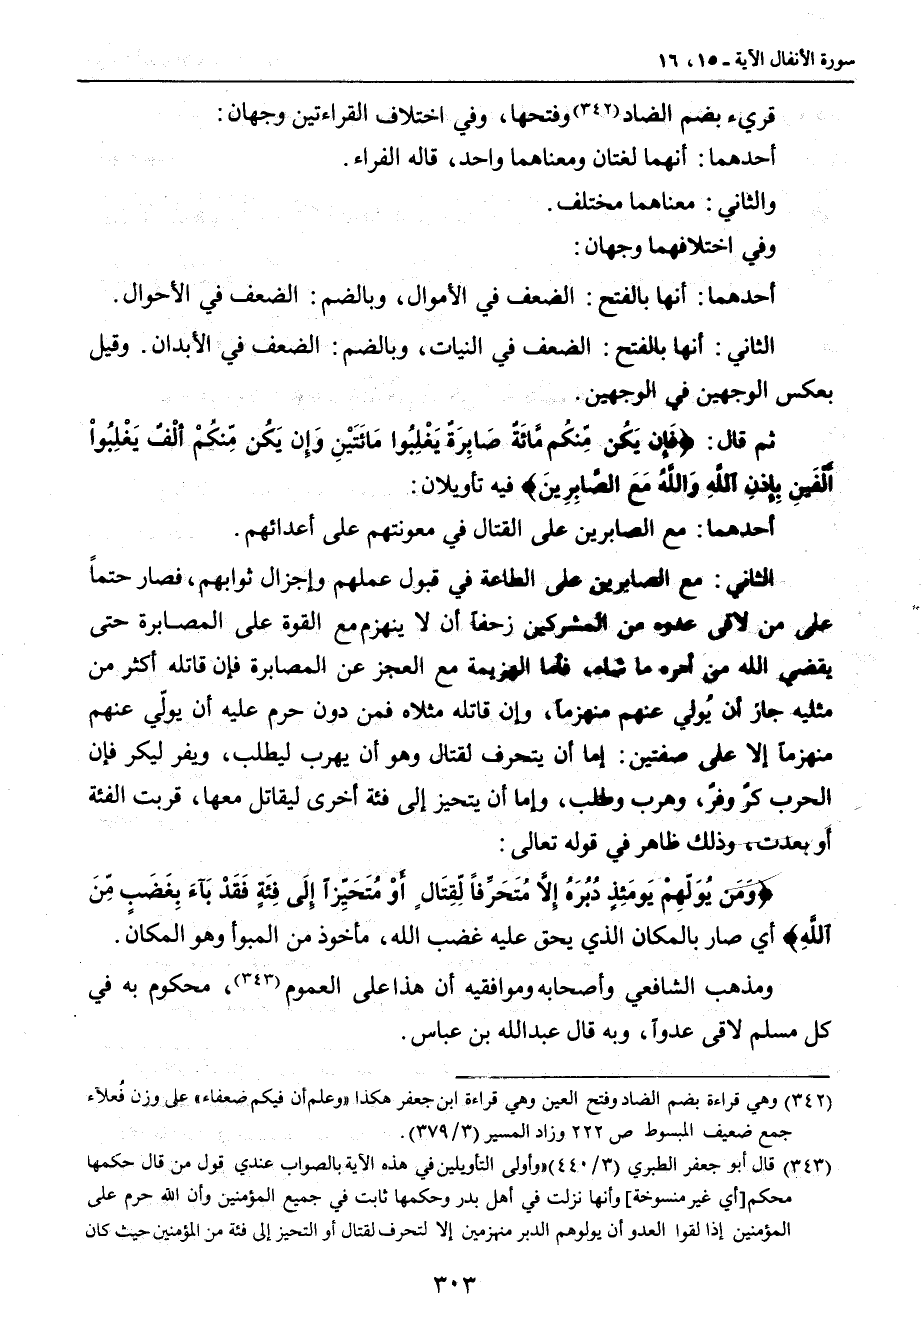 سورة الأنفال الآية - ١٥، ١٦
قريء بضم الضاد(٣٤٢) وفتحها، وفي اختلاف القراءتين وجهان:
أحدهما: أنهما لغتان ومعناهما واحد، قاله الفراء.
والثاني: معناهما مختلف.
وفي اختلافهما وجهان:
أحدهما: أنها بالفتح: الضعف في الأموال، وبالضم: الضعف في الأحوال.
الثاني: أنها بالفتح: الضعف في النيات، وبالضم: الضعف في الأبدان. وقيل
بعكس الوجهين في الوجهين.
ثم قال: ﴿فَإِن يَكُن مِّنكُم مَّائَةٌ صَابِرَةٌ يَغْلِبُوا مَائَتَيْنِ وَإِن يَكُن مِّنكُمْ أَلْفٌ يَغْلِبُواْ
أَلْفَينِ بِإِذنِ اللَّهِ وَاللَّهُ مَعَ الصَّابِرِينَ﴾ فيه تأويلان:
أحدهما: مع الصابرين على القتال في معونتهم على أعدائهم.
الثاني: مع الصابرين على الطاعة في قبول عملهم وإجزال ثوابهم، فصار حتماً
على من لاقى عدوه من المشركين زحفاً أن لا ينهزم مع القوة على المصابرة حتى
يقضي الله من أمره ما شاء، فأما الهزيمة مع العجز عن المصابرة فإن قاتله أكثر من
مثليه جاز أن يُولي عنهم منهزماً، وإن قاتله مثلاه فمن دون حرم عليه أن يولّي عنهم
منهزماً إلا على صفتين: إما أن يتحرف لقتال وهو أن يهرب ليطلب، ويفر ليكر فإن
الحرب كرّ وفرّ، وهرب وطلب، وإما أن يتحيز إلى فئة أخرى ليقاتل معها، قربت الفئة
أو بعدت، وذلك ظاهر في قوله تعالى:
﴿وَمَن يُوَلِّهِمْ يَومَئِذٍ دُبُرَهُ إِلَّا مُتَحَرِّفاً لِّقِتَالٍ أَوْ مُتَحَيِّزاً إِلَى فِئَةٍ فَقَدْ بَآءَ بِغَضَبٍ مِّنَ
اللَّهِ﴾ أي صار بالمكان الذي يحق عليه غضب الله، مأخوذ من المبوأ وهو المكان.
ومذهب الشافعي وأصحابه وموافقيه أن هذا على العموم(٣٤٣)، محكوم به في
كل مسلم لاقى عدواً، وبه قال عبدالله بن عباس.
(٣٤٢) وهي قراءة بضم الضاد وفتح العين وهي قراءة ابن جعفر هكذا «وعلم أن فيكم ضعفاء» على وزن فُعلآء
جمع ضعيف المبسوط ص ٢٢٢ وزاد المسير (٣/ ٣٧٩).
(٣٤٣) قال أبو جعفر الطبري (٣/ ٤٤٠) «وأولى التأويلين في هذه الآية بالصواب عندي قول من قال حكمها
محكم [أي غير منسوخة] وأنها نزلت في أهل بدر وحكمها ثابت في جميع المؤمنين وأن الله حرم على
المؤمنين إذا لقوا العدو أن يولوهم الدبر منهزمين إلا لتحرف لقتال أو التحيز إلى فئة من المؤمنين حيث كان
٣٠٣